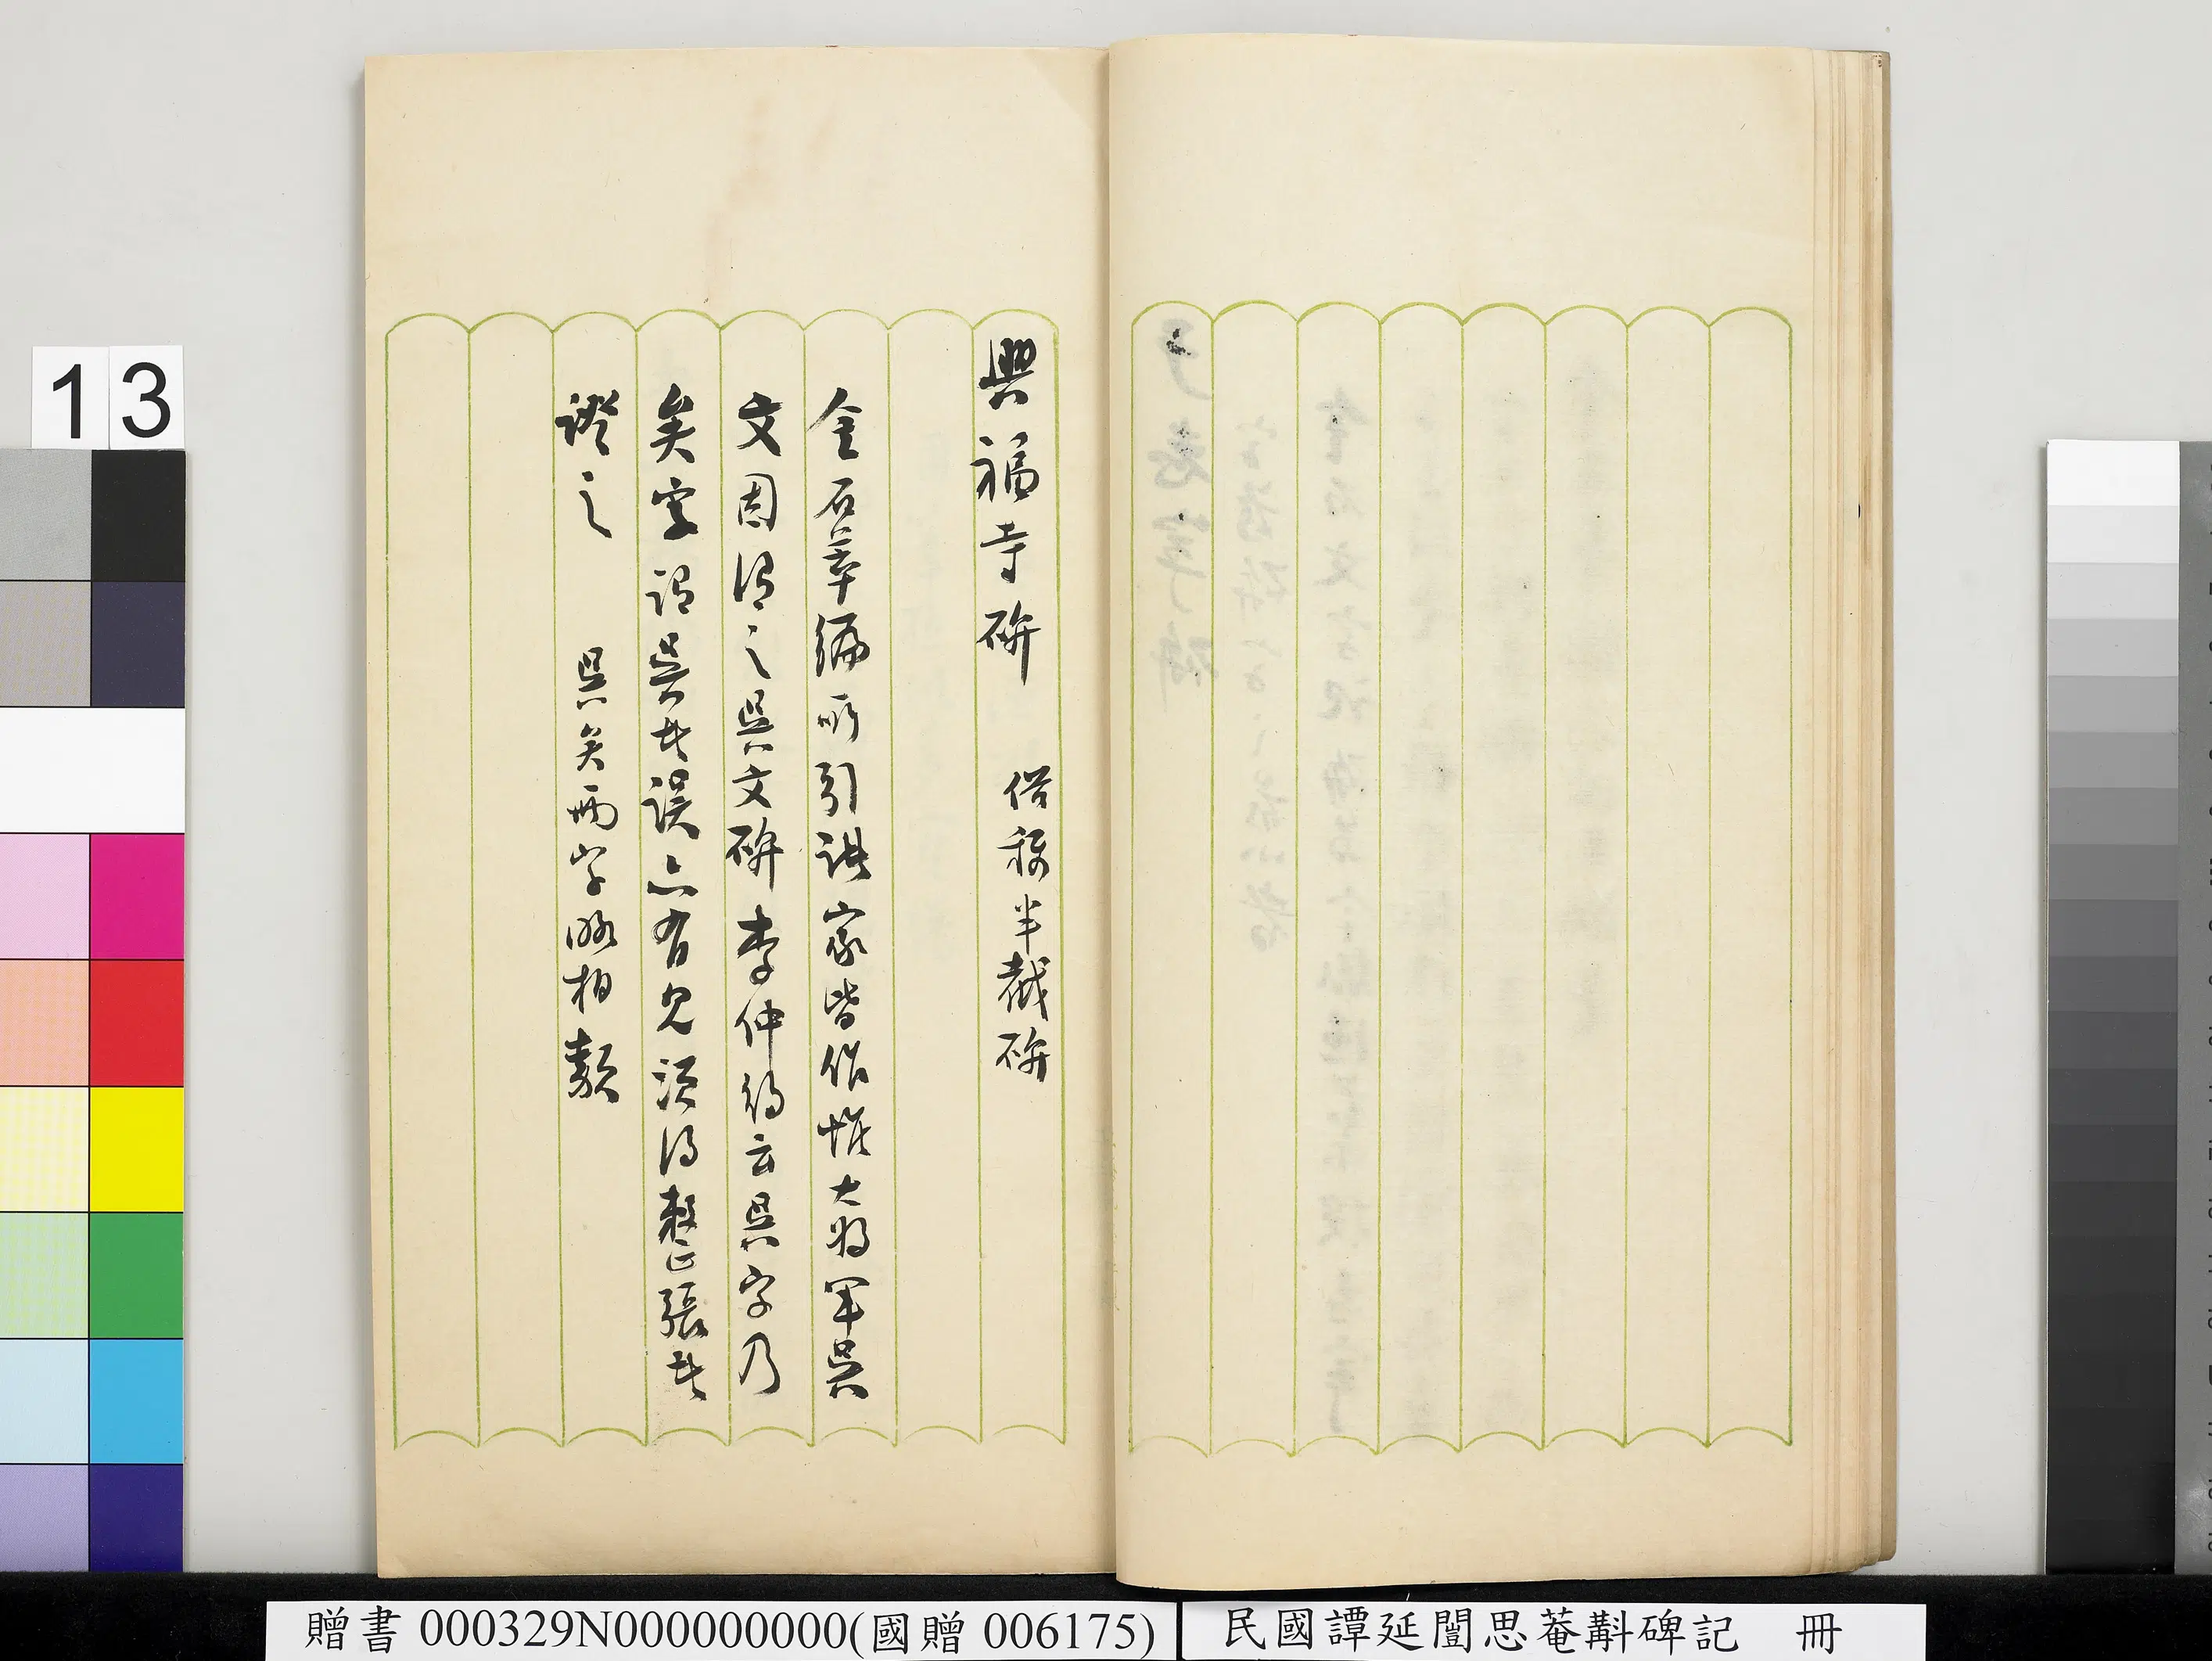 興福寺碑 俗稱半截碑
金石萃編所引諸家皆作惟大將軍吳
文因謂之吳文碑李仲約云吳字乃
矣字謂吳者誤亦有見須得整張者
證之 吳矣兩字畧相類
13
贈書 000329N000000000(國贈 006175)
民國譚延闓思菴斠碑記 冊